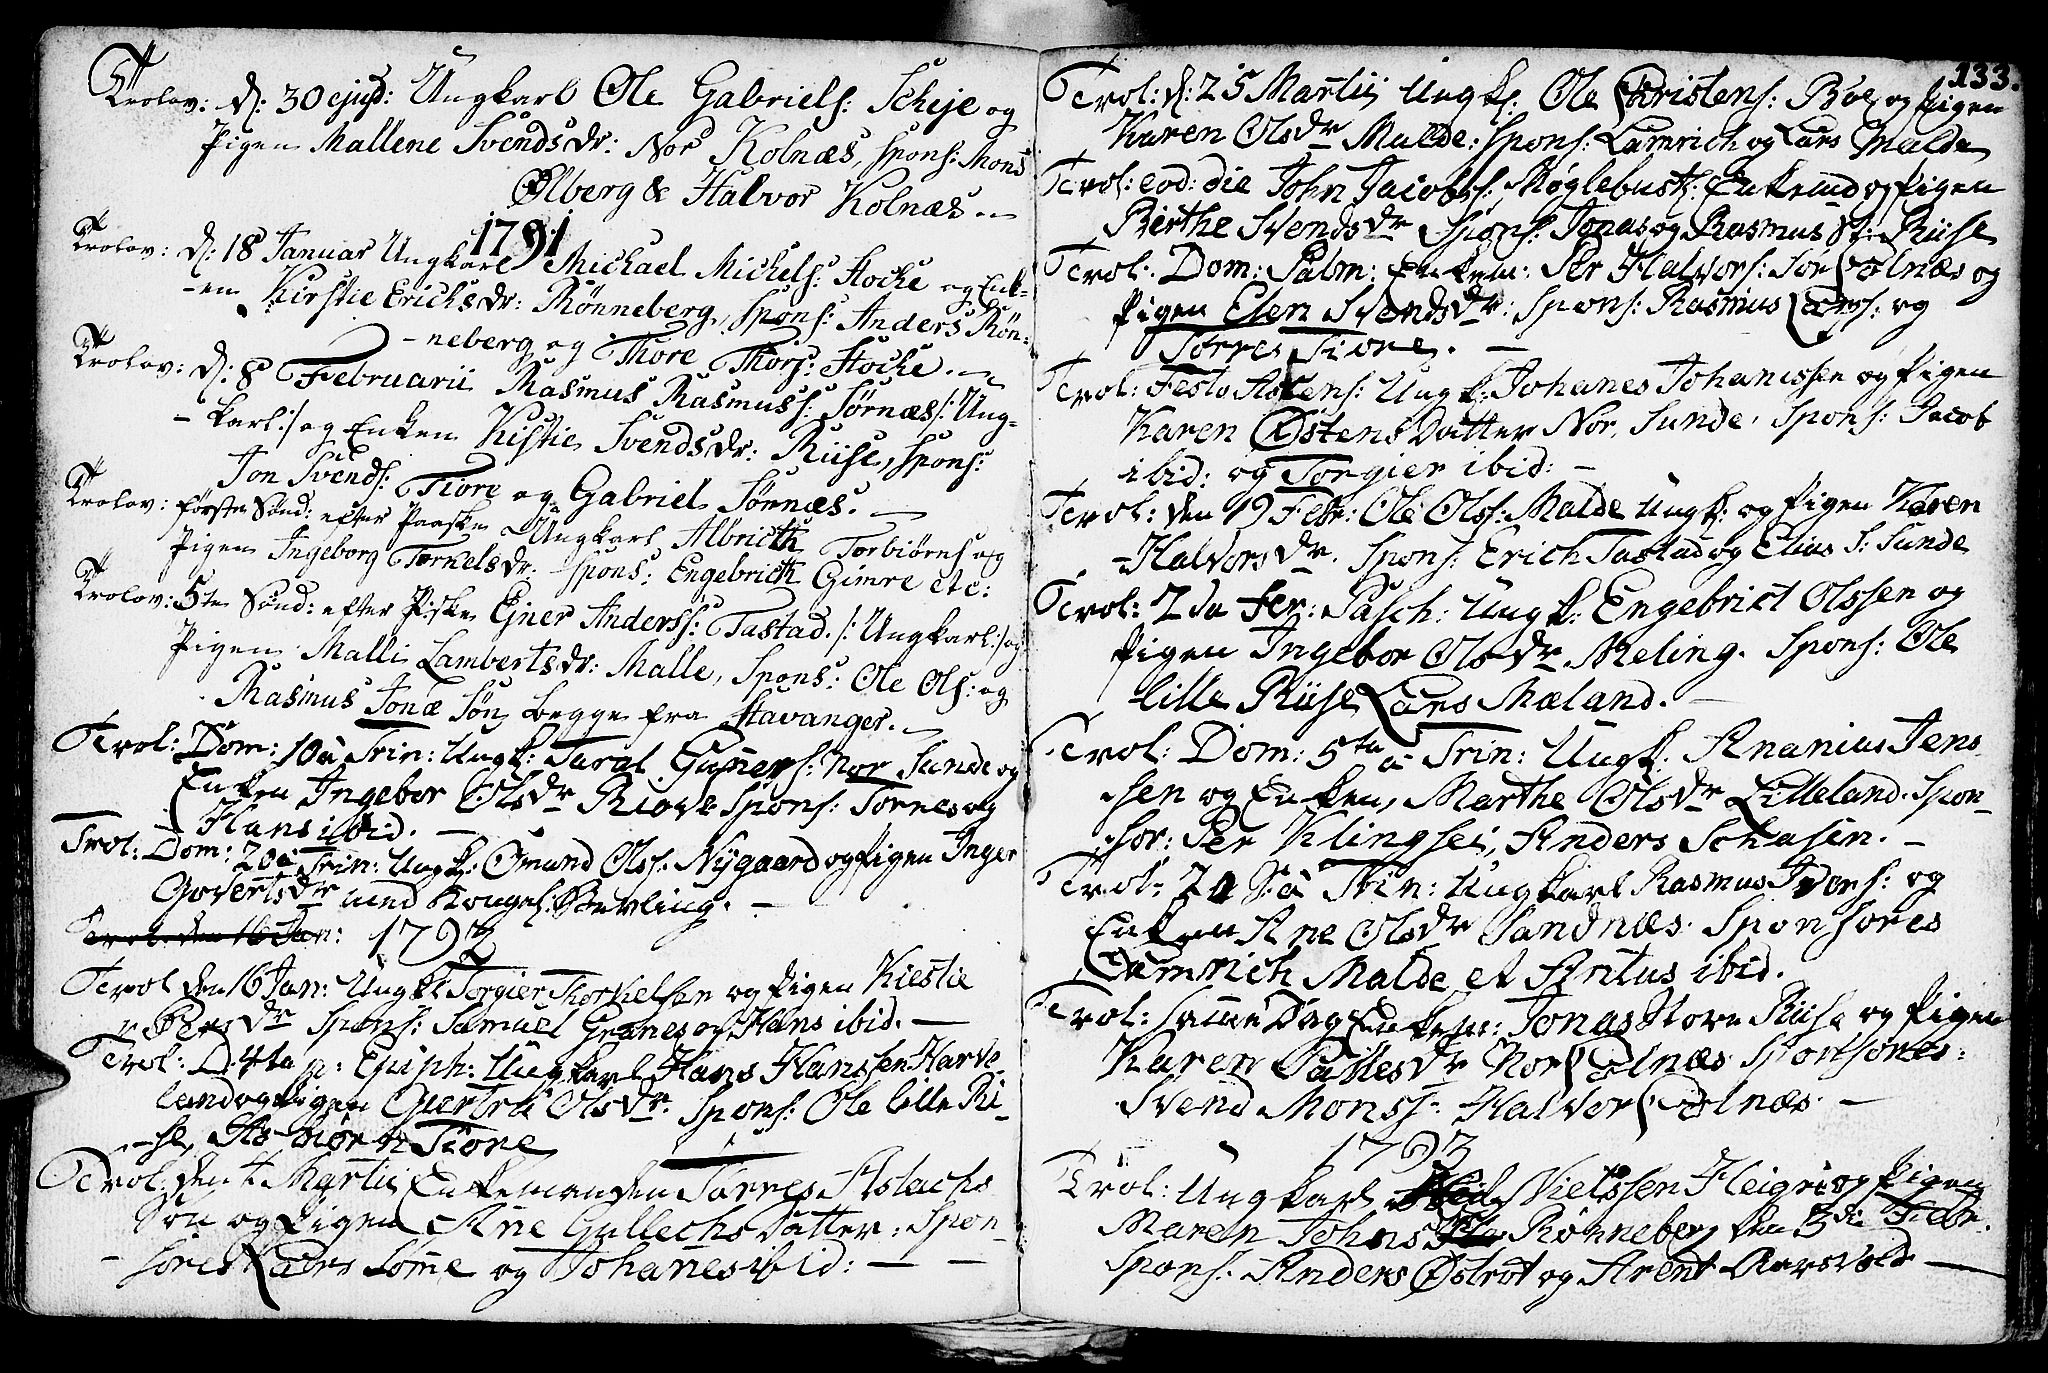 Trolov: d: 30 ejusd: Ungkarl Ole Gabriels: Scheje og
Pigen Mallene Svendsdr: Nor Kolnæs, Spons: Mons
Ølberg & Halvor Kolnæs.
1791
Trolov: d: 18 Januar Ungkarl Michael Michels: Hocke og Enk-
-en Kirstie Ericksdr: Rønneberg, Spons: Anders Røn-
-neberg og Thore Thors: Hocke.
Trolov: d: 8 Februarii Rasmus Rasmuss: Sørnæs /: Ung-
-karl :/ og Enken Kistie Svendsdr: Riise, Spons:
Jon Svends: Tiore og Gabriel Sørnæs.
Trolov: første Sønd: efter Paaske Ungkarl Albricth Torbiørns og
Pigen Ingeborg Tornelsdr: Spons: Engebricth Gimre etc:
Trolov: 5te Sønd: efter P:ske Ejner Anderss: Tastad. /: Ungkarl :/ og
Pigen Malli Lambertsdr: Malle, Spons: Ole Ols: og
Rasmus Jonæ Søn begge fra Stavanger.
Trol: Dom: 10 à Trin: Ungk: Taral Guners: Nor Sunde og
Enken Ingebor Olsdr Riove Spons: Tornes og
Hans ibid.
Trol: Dom: 20 à Trin: Ungk: Omund Olss: Nygaard og Pigen Inger
Govertsdr med Kongel: Bevling.
Trol: den 16 Jan: 1792
Trol den 16 Jan: Ungk: Torgier Thorkelsen og Pigen Kiestie
Persdr Spons: Samuel Granes og Hans ibid.
Trol: D. 4ta p: Epiph: Ungkarl Hans Hanssen Harve-
land og Pigen Giertru Olsdr. Spons: Ole lille Ri-
-se, Asbiørn Tiore
Trol: den 4 Martii Enkemanden Torres Aslachs
Søn og Pigen Ane Gullechs Datter: Spon-
-sores Lars Somme og Johanes ibid:
133.
Trol: d: 25 Martii Ungk: Ole Christens: Boe og Pigen
Karen Olsdr Malde: Spons: Lamrich og Lars Malde
Trol: eod: die John Jacobss: Møglebust: Enkemd og Pigen
Birthe Svendsdr Spons: Jonas og Rasmus St: Riise
Trol: Dom: Palm: Enkem: Per Halvors: Sør Colnæs og
Pigen Elen Svendsdr: Spons: Rasmus Lars: og
Torres Tiore.
Trol: Festo Ascens: Ungk: Johanes Johanissen og Pigen
Karen Østens Datter Nor, Sunde, Spons: Jacob
ibid: og Torgier ibid:
Trol: den 19 Febr: Ole Olss: Malde Ungk: og Pigen Karen
-Halvorsdr. Spons: Erich Tastad og Elias S: Sunde
Trol: 2da Fer: Pasch: Ungk: Engebrict Olssen og
Pigen Ingebor Olsdr Meling. Spons: Ole
lille Riise Lars Mæland.
Trol: Dom: 5ta à Trin: Ungk: Ananias Jens
-sen og Enken, Marthe Olsdr Lilleland. Spon-
sor: Per Klingsei, Anders Schasin.
Trol: 20 S: à Trin: Ungkarl Rasmus Ivars: og
Enken Ane Olsdr Sandnæs. Sponsores
Lamrich Malde et Aritus ibid.
Trol: samme Dag Enkem: Jonas Store Riise og Pigen
Karen Pallesdr Nor Colnæs. Sponsores:
Svend Monss: Halvor Colnæs
1793
Trol: Ungkarl Nielssen Heigre og Pigen
Maren Johns Rønneberg den 3die Febr.
Spons: Anders Østrøt og Arent Aarsvold